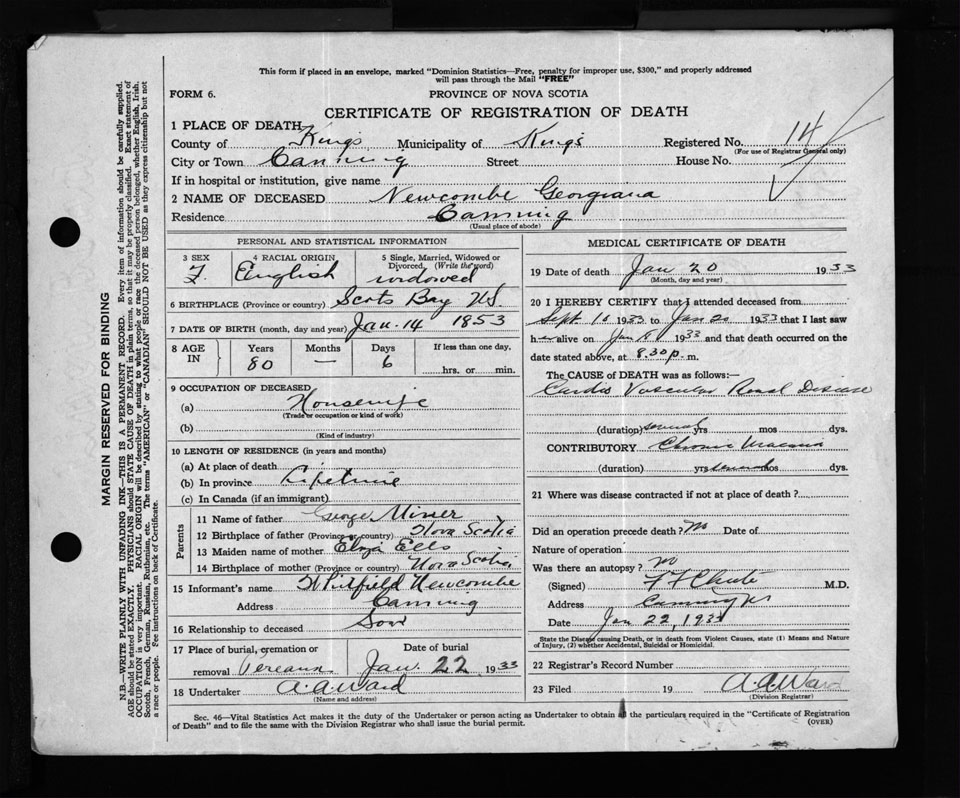 This form if placed in an envelope, marked "Dominion Statistics—Free, penalty for improper use, $300," and properly addressed
will pass through the Mail "FREE"
FORM 6.
PROVINCE OF NOVA SCOTIA
CERTIFICATE OF REGISTRATION OF DEATH
1 PLACE OF DEATH
County of Kings Municipality of Kings Registered No. 14
(For use of Registrar General only)
City or Town Canning Street House No.
If in hospital or institution, give name
2 NAME OF DECEASED Newcombe Georgiana
Residence Canning
(Usual place of abode)
PERSONAL AND STATISTICAL INFORMATION
3 SEX 4 RACIAL ORIGIN 5 Single, Married, Widowed or
Divorced. (Write the word)
F. English widowed
6 BIRTHPLACE (Province or country) Scots Bay N.S.
7 DATE OF BIRTH (month, day and year) Jan. 14 1853
8 AGE IN Years Months Days If less than one day,
80 — 6 hrs. or min.
9 OCCUPATION OF DECEASED
(a) Housewife
(Trade or occupation or kind of work)
(b)
(Kind of industry)
10 LENGTH OF RESIDENCE (in years and months)
(a) At place of death
(b) In province Lifetime
(c) In Canada (if an immigrant)
Parents
11 Name of father George Miner
12 Birthplace of father (Province or country) Nova Scotia
13 Maiden name of mother Eliza Ells
14 Birthplace of mother (Province or country) Nova Scotia
15 Informant's name Whitfield Newcombe
Address Canning
16 Relationship to deceased Son
17 Place of burial, cremation or Date of burial
removal Pereaux Jan. 22 1933
18 Undertaker A.A. Ward
(Name and address)
MEDICAL CERTIFICATE OF DEATH
19 Date of death Jan 20 1933
(Month, day and year)
20 I HEREBY CERTIFY that I attended deceased from
Sept 1933 to Jan 20 1933 that I last saw
her alive on Jan 18 1933 and that death occurred on the
date stated above, at 8.30 p. m.
The CAUSE of DEATH was as follows:—
Cardio Vascular Renal Disease
(duration) several yrs mos dys.
CONTRIBUTORY Chronic Uraemia
(duration) yrs several mos dys.
21 Where was disease contracted if not at place of death?
Did an operation precede death? No Date of
Nature of operation
Was there an autopsy? No
(Signed) F F Chute M.D.
Address Canning NS
Date Jan 22, 1933
State the Disease causing Death, or in death from Violent Causes, state (1) Means and Nature
of Injury, (2) whether Accidental, Suicidal or Homicidal.
22 Registrar's Record Number
23 Filed 19 A.A. Ward
(Division Registrar)
Sec. 46—Vital Statistics Act makes it the duty of the Undertaker or person acting as Undertaker to obtain all the particulars required in the "Certificate of Registration
of Death" and to file the same with the Division Registrar who shall issue the burial permit. (OVER)
MARGIN RESERVED FOR BINDING
N.B.—WRITE PLAINLY WITH UNFADING INK—THIS IS A PERMANENT RECORD. Every item of information should be carefully supplied.
AGE should be stated EXACTLY. PHYSICIANS should STATE CAUSE OF DEATH in plain terms, so that it may be properly classified. Exact statement of
OCCUPATION is very important. RACIAL ORIGIN will be described by stating to what people or race the deceased person belonged, whether English, Irish,
Scotch, French, German, Russian, Ruthenian, etc. The terms "AMERICAN" or "CANADIAN" SHOULD NOT BE USED as they express citizenship but not
a race or people. Fee instructions on back of Certificate.